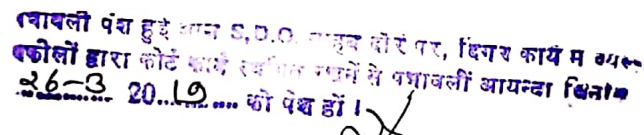 पत्रावली पेश हुई आज S.D.O. साहब दौरे पर, दिगर कार्य में व्यस्त
वकीलों द्वारा कोर्ट कार्य स्थगित रखने से पत्रावलीं आयन्दा दिनांक
26-3 20..19.... को पेश हों ।